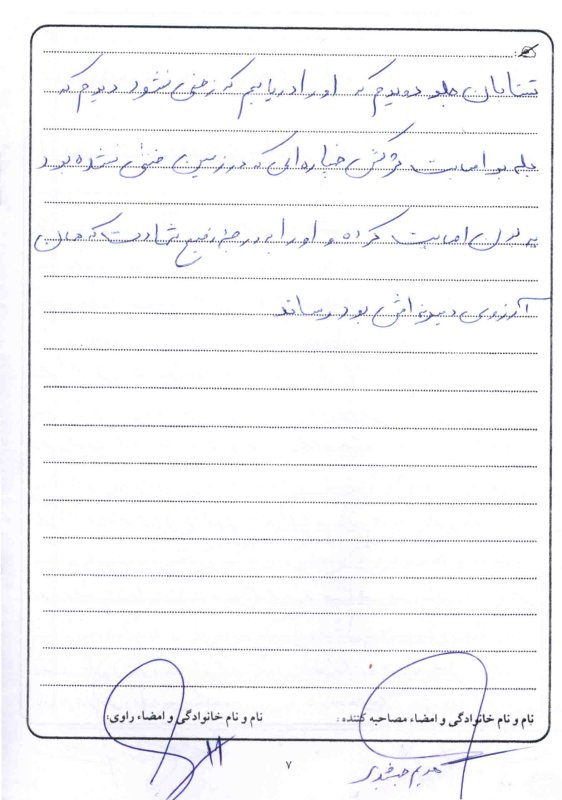 شتابان جلو دویدم که او را دریابیم که زخمی نشود دیدم که
بله بر اصابت ترکش خمپاره‌ای که در زمین خنثی نشده بود
به بدن اصابت کرده و او را به درجه رفیع شهادت که همان
آرزوی دیرینه اش بود رساند
نام و نام خانوادگی و امضاء مصاحبه کننده :
نام و نام خانوادگی و امضاء راوی:
۷
مریم